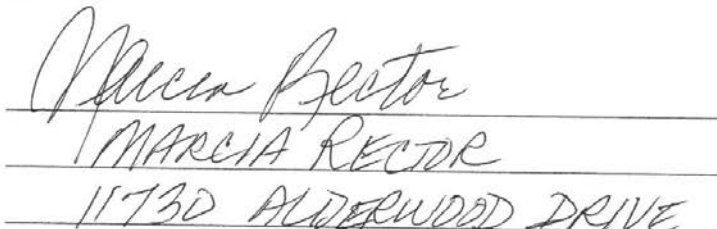 Marcia Rector
MARCIA RECTOR
11730 ALDERWOOD DRIVE